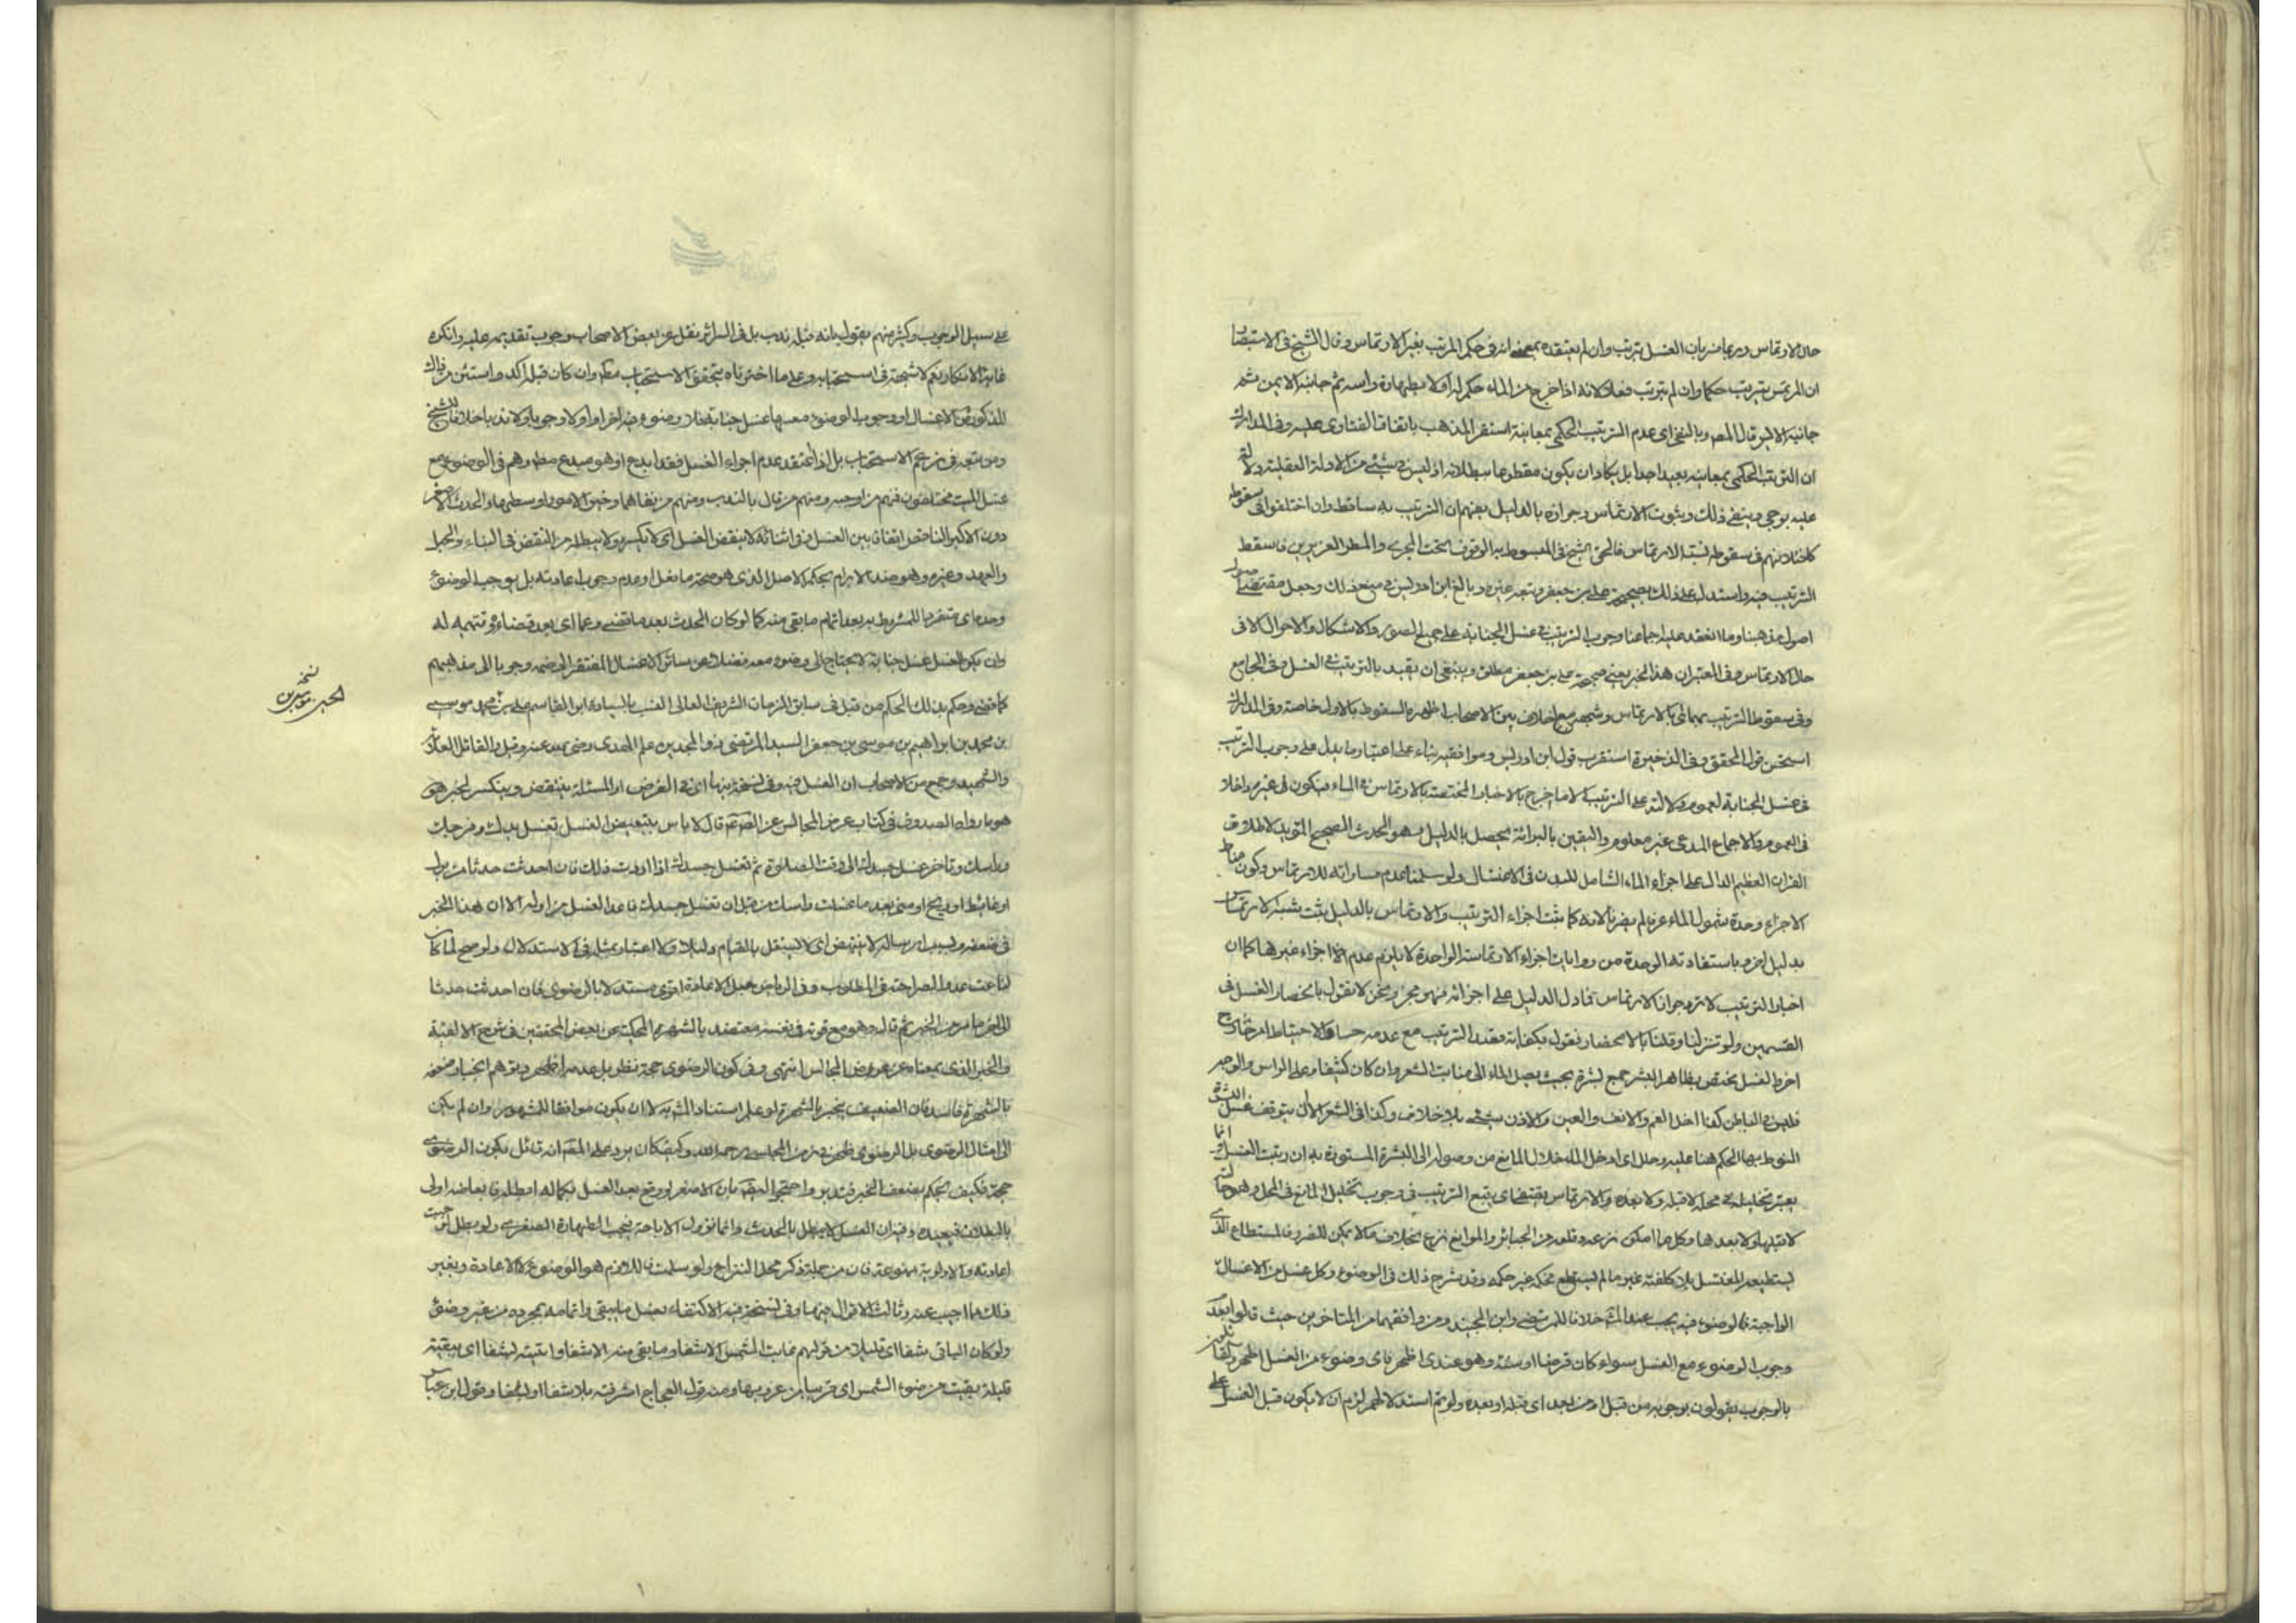 حال الارتماس وربما ضربان الغسل بترتب وان لم يعتقده بمعنى انه فى حكم المرتب بغير الارتماس وقال الشيخ فى الاستبصار
ان المرتمس يترتب حكما وان لم يترتب فعلا لانه اذا خرج من الماء حكم له اولا بطهارة راسه ثم جانبه الايمن ثم
جانبه الايسر قال المص وبالنخى اى عدم الترتيب الحكمى بمعانيه استقر المذهب باتفاق الفتاوى عليه وفى المدارك
ان الترتيب الحكمى بمعانيه بعيد جدا بل يكاد ان يكون مقطوعا ببطلانه اذ ليس فى شىء من الادلة العقلية دلالة
عليه بوجه وينفى ذلك وبثبوت الارتماس وجوازه بالدليل يفهم ان الترتيب به ساقط وان اختلفوا فى سقوطه
كاختلافهم فى سقوطه بشبه الارتماس فالحق الشيخ فى المبسوط به الوقوف تحت المجرى والمطر الغزيرين فاسقط
الترتيب فيه واستدل على ذلك بصحيحة على بن جعفر وتبعه غيره وبالغ ابن ادريس فى منع ذلك وجعل مقتضى
اصول مذهبنا وما انعقد عليه اجماعنا وجوب الترتيب فى غسل الجنابة على جميع الصور والاشكال والاحوال الا فى
حال الارتماس وفى المعتبر ان هذا الخبر يعنى صحيحة على بن جعفر مطلق وينبغى ان يقيد بالترتيب فى الغسل وفى الجامع
وفى سقوط الترتيب بهما اى بالارتماس وشبهه مع خلاف بين الاصحاب اظهره السقوط بالاول خاصة وفى المدارك
استحسن قول المحقق وفى الذخيرة استقرب قول ابن ادريس وموافقيه بناء على اعتبار ما يدل على وجوب الترتيب
فى غسل الجنابة لعموم دلالته على الترتيب الا ما خرج بالاخبار المختصة بالارتماس فى الماء فيكون فى غيره داخلا
فى العموم والاجماع المدعى غير معلوم واليقين بالبرائة يحصل بالدليل وهو الحديث الصحيح المؤيد لاطلاق
القران العظيم الدال على اجزاء الماء الشامل للبدن فى الاغتسال ولو سلمنا عدم مساواته للارتماس وكون مناط
الاجزاء وحدة شمول الماء عرفا لم يضرنا لانه كما يثبت اجزاء الترتيب والارتماس بالدليل يثبت شبه الارتماس
بدليل اخر وباستفادته الوحدة من روايات اجزاء الارتماسة الواحدة لا يلزم عدم اجزاء غيرها كما ان
اخبار الترتيب لا ترد جواز الارتماس فما دل الدليل على اجزائه فهو مجز ونحن لا نقول بانحصار الغسل فى
القسمين ولو تنزلنا وقلنا بالانحصار فنقول بكفاية الترتيب مع عدمه حسا والاحتياط امر خارج
اخر الغسل يختص بظاهر البشر جمع بشرة بحيث يصل الماء الى منابت الشعر وان كان كثيفا وعلى الراس والوجه
فليس فى الباطن كذا داخل الفم والانف والعين والاذن شىء بلا خلاف وكذا فى الشعر الا ان يتوقف غسل البشرة
المنوط بها الحكم هنا عليه وخلل اى ادخل الماء خلال المانع من وصوله الى البشرة المستورة به ان رتبت الغسل
يعتبر تخليله فى محله لا قبله ولا بعده والارتماس يقتضى اى يتبع الترتيب فى وجوب تخليل المانع فى المحل
لا قبلها ولا بعدها وكل ما امكن نزعه وقلعه من الجبائر والموانع نزع بخلاف ما لا يمكن للضرر فالمستطاع الذى
يستطيعه المغتسل بلا كلفة غير ما لم يستطع فحكمه غير حكمه وقد شرح ذلك فى الوضوء وكل غسل من الاغسال
الواجبة فالوضوء فيه يجب عند المشهور خلافا للمرتضى وابن الجنيد ومن وافقهما من المتاخرين حيث قالوا بعدم
وجوب الوضوء مع الغسل سواء كان فرضا او سنة وهو عندى اظهر فاى وضوء من الغسل اطهر
بالوجوب يقولون بوجوبه من قبل او من بعد اى قبله او بعده ولو تم استدلالهم لزم ان لا يكون قبل الغسل على
على سبيل الوجوب وكثير منهم يقول بانه قبله ندب بل فى السرائر نقل عن بعض الاصحاب وجوب تقديمه عليه وانكره
غاية الانكار نعم لا شبهة فى استحبابه وعلى ما اخترناه يتحقق الاستحباب مطلقا وان كان قبله اكد واستثن من ذاك
المذكور من الاغسال او وجوب الوضوء معها غسل جنابة فلا وضوء فيه اخرا واولا وجوبا ولا ندبا خلافا للشيخ
ومن تبعه فى زعم الاستحباب بل اذا اعتقد عدم اجزاء الغسل فقد ابدع او هو مبدع مطلقا وهم فى الوضوء مع
غسل الميت مختلفون فمنهم من اوجبه ومنهم من قال بالندب ومنهم من نفاهما وخير الامور اوسطها والحدث الاصغر
دون الاكبر الناقض اتفاقا بين الغسل فى اثنائه لا ينقض الغسل اى لا يكسره ولا يبطله من النقض فى البناء والحبل
والعهد وغيره وهو ضد الابرام بحكم الاصل الذى هو صحة ما فعل او عدم وجوب اعادته بل يوجب الوضوء
وحده اى منفردا للمشروط به بعد اتمام ما بقى منه كما لو كان الحدث بعد ما قضى وعما اى بعد قضائه وتتميمه له
وان يكن الغسل غسل جنابة لا يحتاج الى وضوء معه فضلا عن سائر الاغسال المفتقرة الى ضمه وجوبا الى مذهبهم
كما مضى وحكم بذلك الحكم من قبل فى سابق الزمان الشريف العالى النسب بالسيادة ابو القاسم على بن محمد موسى
بن محمد بن ابراهيم بن موسى بن جعفر السيد المرتضى ذو المجدين علم الهدى رضى الله عنه وقبل والقائل
والشهيد وجمع من الاصحاب ان الغسل فيه وفى نسخة فيها اى فى الفرض او المسئلة ينتقض وينكسر لخبر هو
هو ما رواه الصدوق فى كتاب عرض المجالس عن الصم قال لا باس بتبعيض الغسل تغسل يدك وفرجك
وراسك وتاخر غسل جسدك الى وقت الصلوة ثم تغسل جسدك اذا اردت ذلك فان احدثت حدثا من بول
او غائط او ريح او منى بعد ما غسلت راسك من قبل ان تغسل جسدك فاعد الغسل من اوله الا ان هذا الخبر
فى ضعفه وبسبب ارساله لا ينتهض اى لا يستقل بالقيام دليلا ولا اعتبار بمثله فى الاستدلال ولو صح لما كان
لنا عنه عدول لصراحته فى المطلوب وفى الرياض جعل الاعادة اقوى مستدلا بالرضوى فان احدثت حدثا
الى اخر ما مر من الخبر ثم قال وهو مع قوته فى نفسه معتضد بالشهرة المحكية عن بعض المحققين فى شرح الالفية
والخبر الذى بمعناه عن عرض المجالس انتهى وفى كون الرضوى حجة نظر بل عدمه اظهر وتوهم انجبار ضعفه
بالشهرة فاسد فان الضعيف ينجبر بالشهرة لو علم استناد الشهرة الا ان يكون موافقا للمشهور وان لم يكن
الى امثال الرضوى بل الرضوى ظهر فى زمن المجلسى رحمه الله وكيف كان يرد على المص انه قائل بكون الرضوى
حجة فكيف يحكم بضعف الخبر فتدبر واحتجوا ايضا بان الاصغر لو وقع بعد الغسل بكماله ابطله فابعاضه اولى
بالبطلان فيعيده وفيه ان الغسل لا يبطل بالحدث وانما تزول الاباحة فيجب الطهارة الصغرى ولو بطل لوجبت
اعادته والاولوية ممنوعة فان من جملة ذكر محل النزاع ولو سلمت فاللازم هو الوضوء لا الاعادة وبغير
ذلك مما اجيب عنه وثالث الاقوال فيها وفى نسخة فيه الاكتفاء بغسل ما بقى واتمامه بمجرده من غير وضوء
ولو كان الباقى شفا اى قليلا من قولهم غابت الشمس الا شفا وما بقى منه الا شفا وابتته بشفا اى ببقية
قليلة بقيت من ضوء الشمس اى قريبا من غروبها ومنه قول العجاج اشرفته بلا شفا او بشفا وقول ابن عباس
نسخة